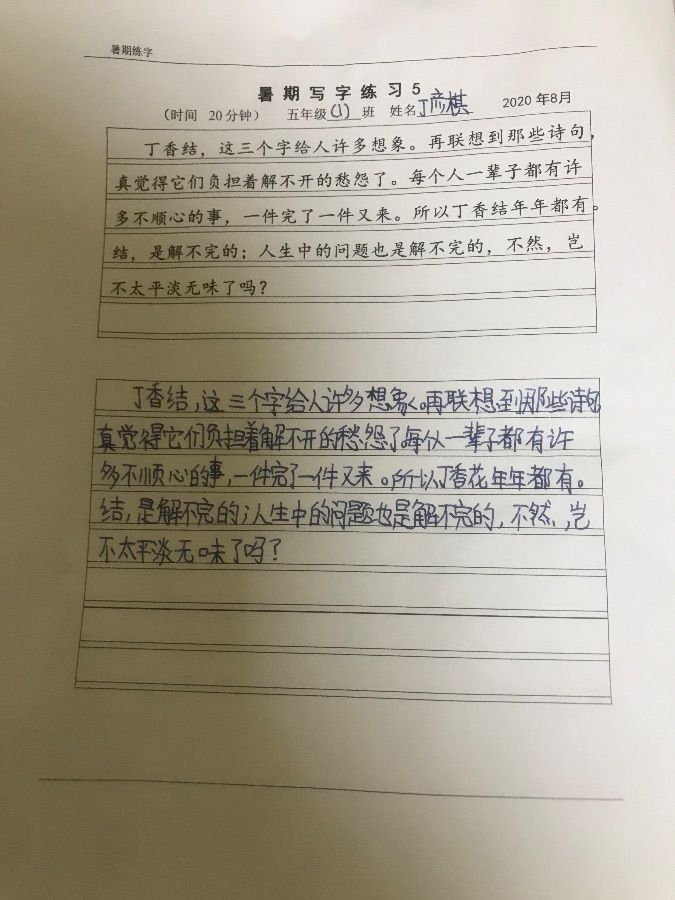 暑期练字
暑期写字练习5
（时间 20分钟） 五年级(1)班 姓名丁彦棋 2020年8月
丁香结，这三个字给人许多想象。再联想到那些诗句，
真觉得它们负担着解不开的愁怨了。每个人一辈子都有许
多不顺心的事，一件完了一件又来。所以丁香结年年都有。
结，是解不完的；人生中的问题也是解不完的，不然，岂
不太平淡无味了吗？
丁香结，这三个字给人许多想象。再联想到那些诗句
真觉得它们负担着解不开的愁怨了每个人一辈子都有许
多不顺心的事，一件完了一件又来。所以丁香花年年都有。
结，是解不完的；人生中的问题也是解不完的，不然，岂
不太平淡无味了吗？